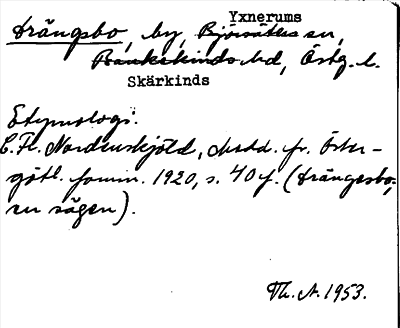 Yxnerums
Drängsbo, by, Björsäters sn,
Bankekinds hd, Östg. l.
Skärkinds
Etymologi:
C. Fr. Nordenskjöld, Medd. fr. Öster-
götl. fornm. 1920, s. 40 f. (Drängsbo,
en sägen).
Th. A. 1953.